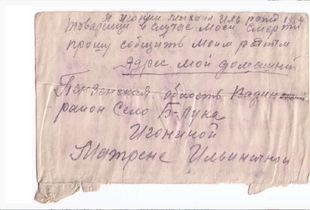 Я Игонин Михаил Иль
Товарищи в случае моей смерти
прошу сообщить моим
адрес мой домашний
Пензенская область Вадин
район Село Б-Лука
Игониной
Матрене Ильинични